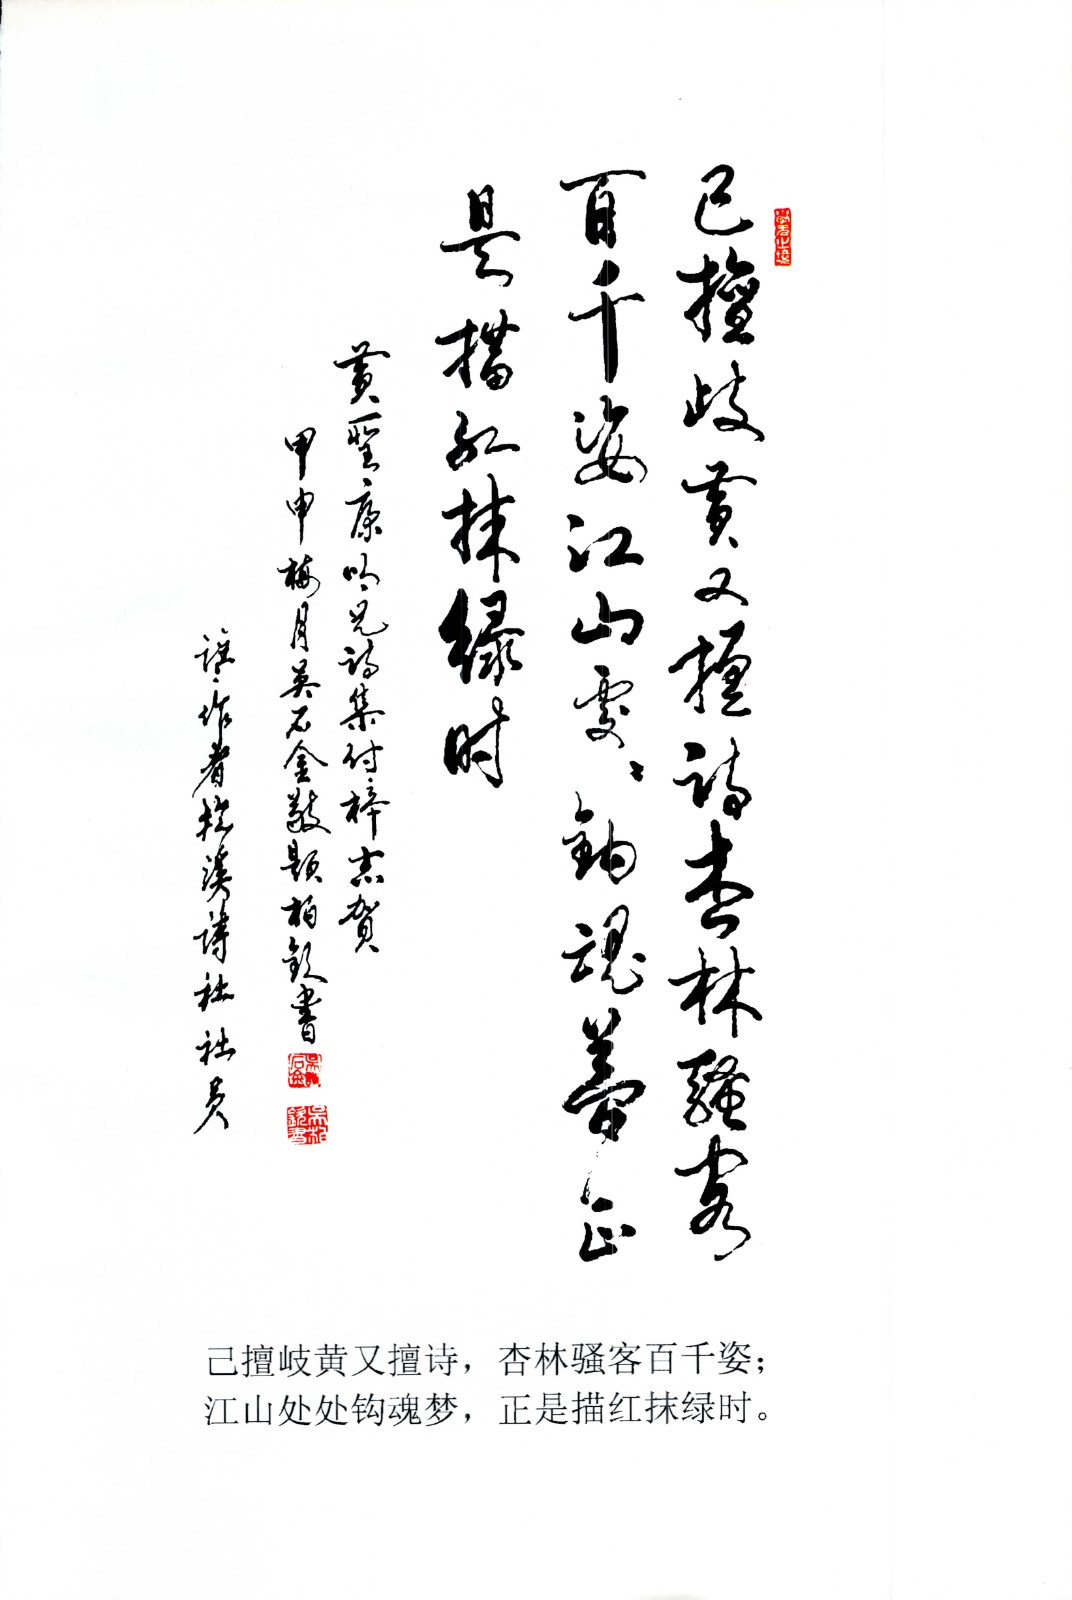 己擅歧黄又擅诗杏林骚客
百千姿江山处处钩魂梦正
是描红抹绿时
黄圣康吟兄诗集付梓志贺
甲申梅月吴石金敬题柏钦书
注作者榄溪诗社社员
己擅岐黄又擅诗，杏林骚客百千姿；
江山处处钩魂梦，正是描红抹绿时。